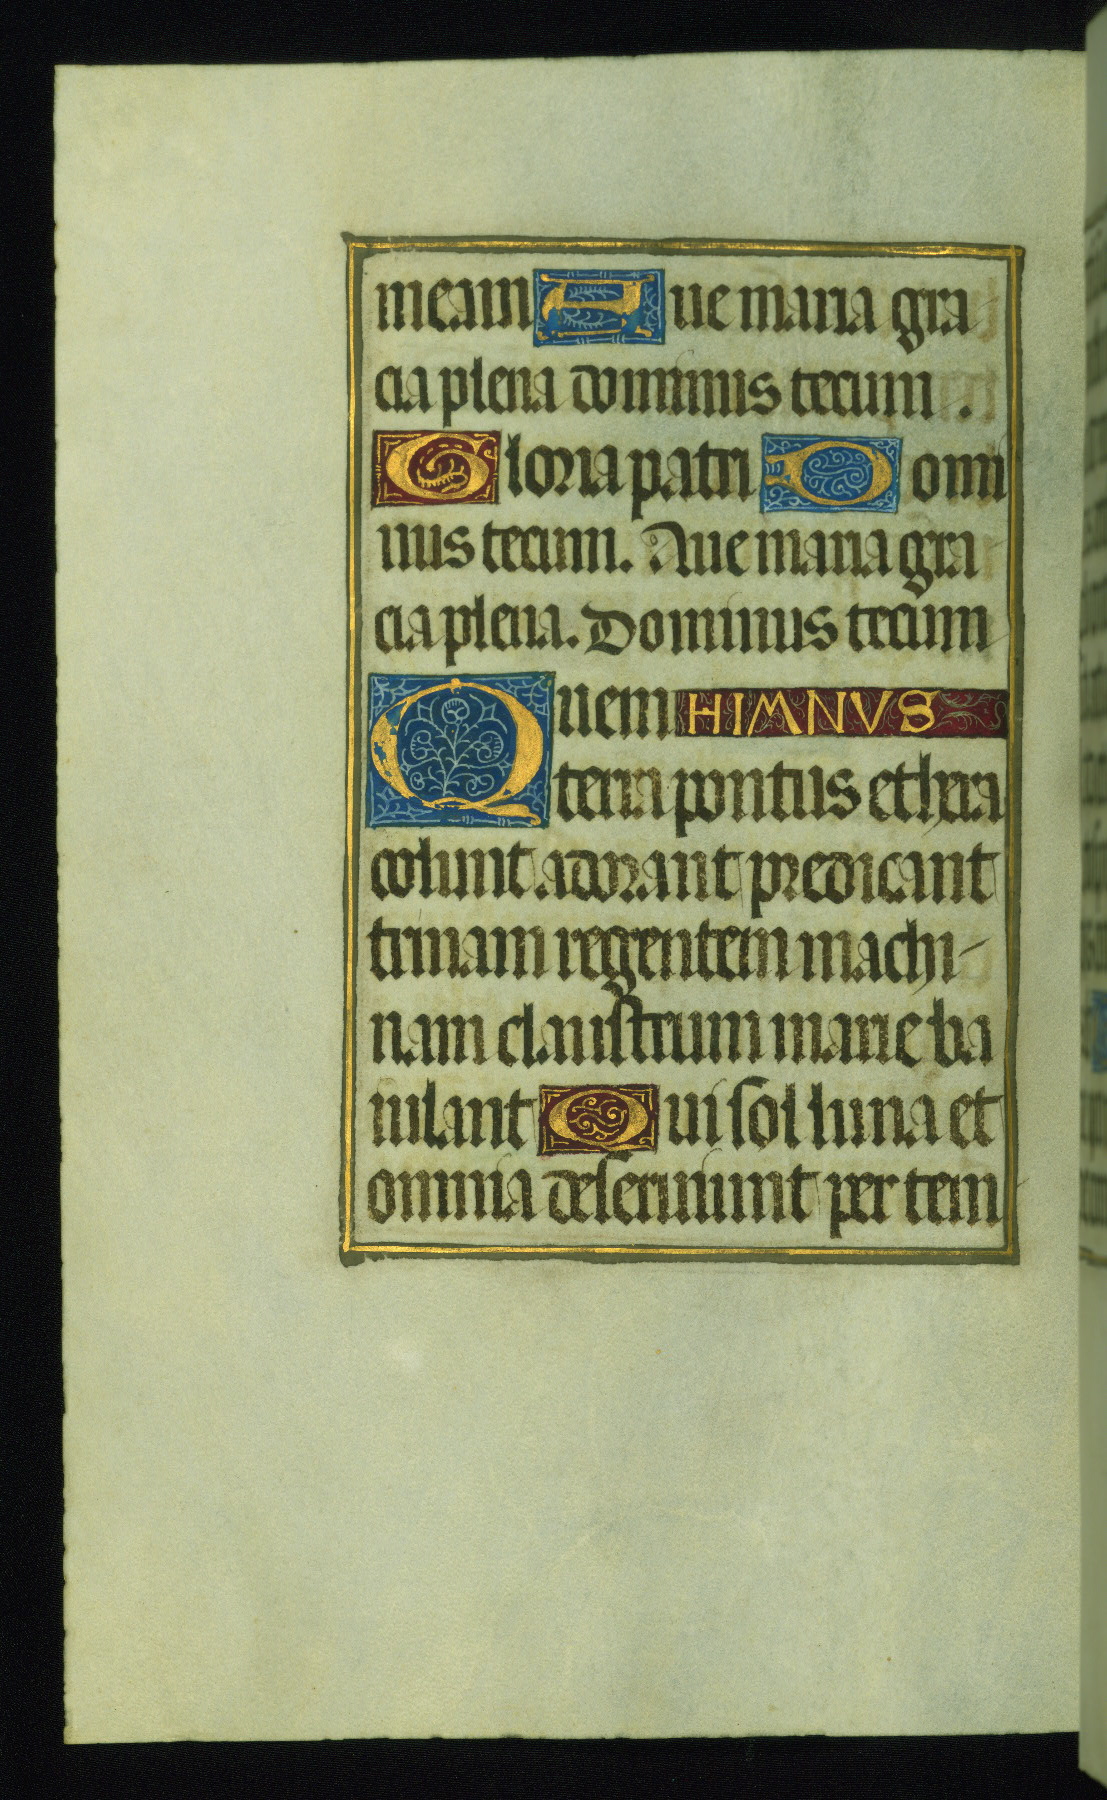 meam Aue maria gra
cia plena dominus tecum .
Gloria patri Domi
nus tecum. Aue maria gra
cia plena. Dominus tecum
Quem HIMNVS
terra pontus ethera
colunt adorant predicant
trinam regentem machi-
nam claustrum marie ba
iulant Qui sol luna et
omnia deseruiunt per tem